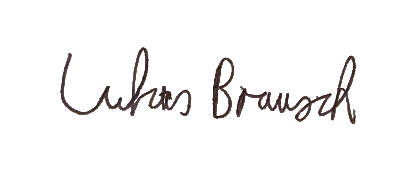 Lukas Brausch